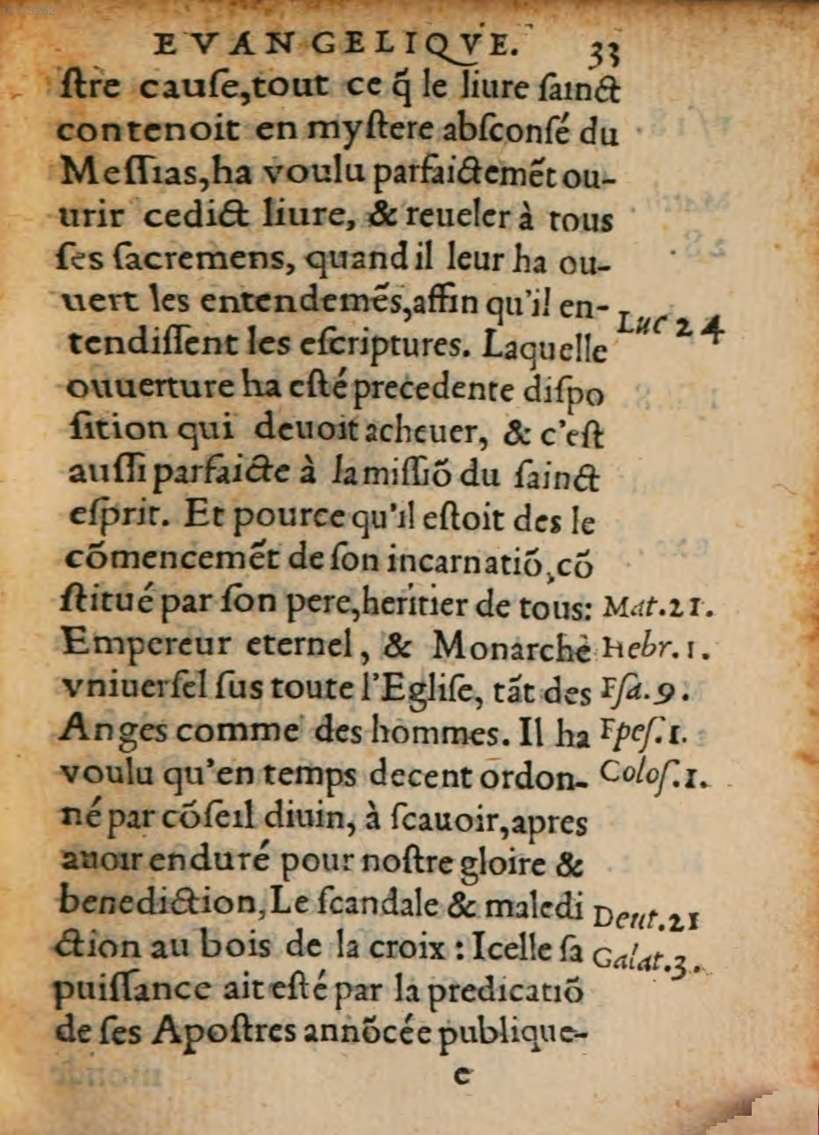 EVANGELIQVE. 33
ſtre cauſe,tout ce q̃ le liure ſainct
contenoit en myſtere abſconſé du
Meſſias,ha voulu parfaictemẽt ou-
urir cedict liure, & reueler à tous
ſes ſacremens, quand il leur ha ou-
uert les entendemẽs,affin qu'il en-
Luc 24
tendiſſent les eſcriptures. Laquelle
ouuerture ha eſté precedente diſpo
ſition qui deuoit acheuer, & c'eſt
auſſi parfaicte à la miſſiõ du ſainct
eſprit. Et pource qu'il eſtoit des le
cõmencemẽt de ſon incarnatiõ,cõ
ſtitué par ſon pere,heritier de tous: Mat.21.
Empereur eternel, & Monarche Hebr.1.
vniuerſel ſus toute l'Egliſe, tãt des Eſa.9.
Anges comme des hommes. Il ha Epeſ.1.
voulu qu'en temps decent ordon- Coloſ.1.
né par cõſeil diuin, à ſcauoir,apres
auoir enduré pour noſtre gloire &
benediction,Le ſcandale & maledi Deut.21
ction au bois de la croix : Icelle ſa Galat.3.
puiſſance ait eſté par la predicatiõ
de ſes Apoſtres annõcée publique-
e